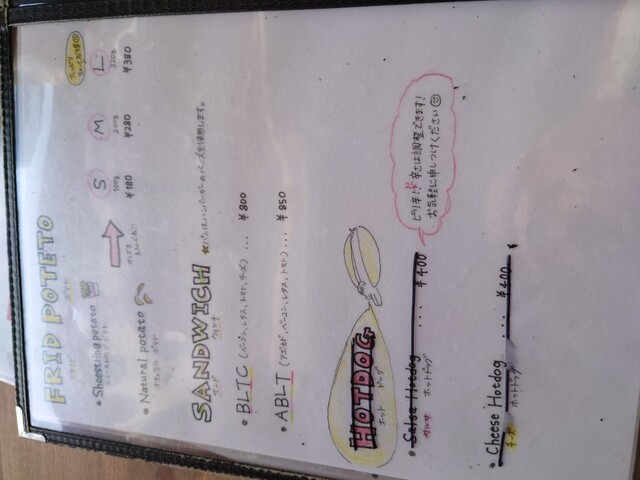 FRID POTETO
フライド ポテト
• Shoestring potato
• Natural potato
ナチュラル ポテト
S M L
100g 200g 320g
¥180 ¥280 ¥380
SANDWICH
サンド ウィッチ
★パンはハンバーガーのバンズを使用します。
• BLTC (ベーコン、レタス、トマト、チーズ) ... ¥800
• ABLT (アボカド、ベーコン、レタス、トマト) ... ¥850
HOTDOG
ホット ドッグ
• Salsa Hotdog .... ¥400
サルサ ホットドッグ
ピリ辛! 辛さは調整できます!
お気軽に申しつけください
• Cheese Hotdog .... ¥400
チーズ ホットドッグ